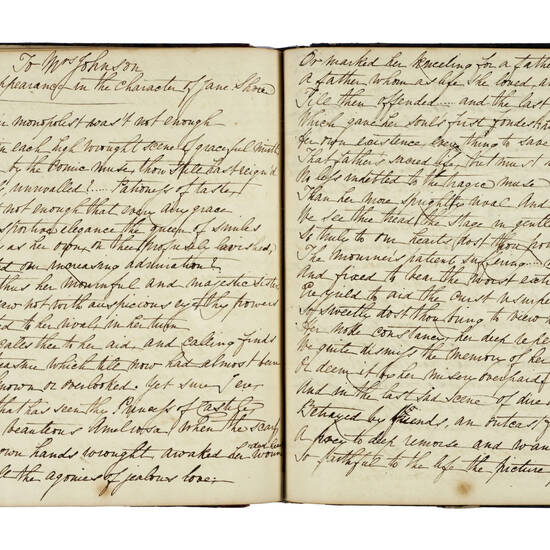 To Mrs Johnson
appearance in the Character of Jane Shore
monopolist was't not enough
each high wrought scene of graceful mirth
by the Comic muse, thou
unrivalled!.... Patroness of taste!
not enough that every airy grace
elegance the queen of smiles
as her own, on thee profusely lavished,
our increasing admiration?
thus her mournful and majestic sister
saw not with auspicious eye thy powers
to her rival in her turn
calls thee to her aid, and calling finds
treasure which till now had almost been
or overlooked. Yet sure, ever
that has seen the Princess of Castile
beauteous Amelrosa, when the scarf
own hands wrought, awaked her
the agonies of jealous love;
Or marked her kneeling for a father
a father whom as life she loved, a
Till then offended.... and the last
Which gave her souls first fondest
her own existence every thing to save
That fathers sacred life, but must
no less indebted to the tragic muse
Than her more sprightly rival. and
we see thee tread the stage in gentle
So truly to our hearts dost thou
The Mourners patient suffering....
and fixed to bear the worst
to aid the curst
So sweetly dost thou bring to view
Her noble constancy, her deep
We quite dismiss the memory of her
Or deem it by her misery overpaid
and in the last sad scene of dire
Betrayed by friends, an outcast
a prey to deep remorse and want
So faithful to the life the picture